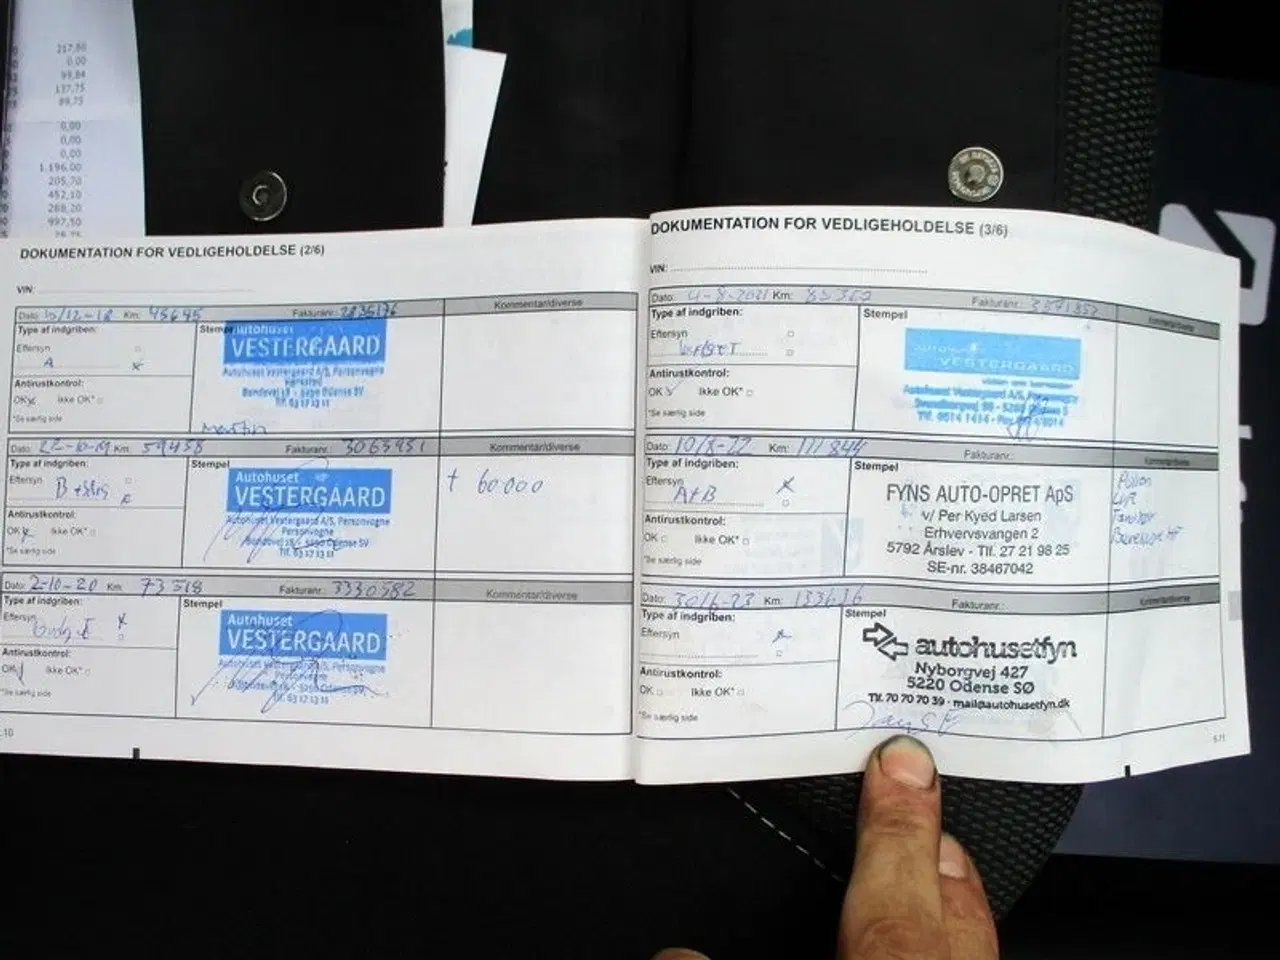 217,80
0,00
99,84
137,75
89,75
0,00
0,00
0,00
1.196,00
205,70
452,10
268,20
997,50
DOKUMENTATION FOR VEDLIGEHOLDELSE (2/6)
VIN:
Dato: 10/12-18 Km: 45645 Fakturanr.: 2836176 Kommentar/diverse
Type af indgriben:
Eftersyn
A x
Antirustkontrol:
OK x Ikke OK*
*Se særlig side
Stempel
Autohuset
VESTERGAARD
Autohuset Vestergaard A/S, Personvogne
Værksted
Bondovej 18 - 5250 Odense SV
Tlf. 63 17 13 11
Martin
Dato: 22-10-19 Km: 59458 Fakturanr.: 3063451 Kommentar/diverse
Type af indgriben:
Eftersyn
B x
Antirustkontrol:
OK x Ikke OK*
*Se særlig side
Stempel
Autohuset
VESTERGAARD
Autohuset Vestergaard A/S, Personvogne
Personvogne
Bondovej 18 - 5250 Odense SV
Tlf. 63 17 13 11
+ 60.000
Dato: 2-10-20 Km: 73518 Fakturanr.: 3330582 Kommentar/diverse
Type af indgriben:
Eftersyn x
Antirustkontrol:
OK Ikke OK*
*Se særlig side
Stempel
Autohuset
VESTERGAARD
Autohuset Vestergaard A/S, Personvogne
5250 Odense SV
Tlf. 63 17 13 11
DOKUMENTATION FOR VEDLIGEHOLDELSE (3/6)
VIN:
Dato: 4-8-2021 Km: Fakturanr.: 3571852 Kommentar/diverse
Type af indgriben:
Eftersyn
Antirustkontrol:
OK Ikke OK*
*Se særlig side
Stempel
Autohuset
VESTERGAARD
Autohuset Vestergaard A/S, Personvogne
Dato: 10/8-22 Km: 111844 Fakturanr.: Kommentar/diverse
Type af indgriben:
Eftersyn x
A+B
Antirustkontrol:
OK Ikke OK*
*Se særlig side
Stempel
FYNS AUTO-OPRET ApS
v/ Per Kyed Larsen
Erhvervsvangen 2
5792 Årslev - Tlf. 27 21 98 25
SE-nr. 38467042
Pollen
Luft
Dato: 30/6-23 Km: 133636 Fakturanr.: Kommentar/diverse
Type af indgriben:
Eftersyn x
Antirustkontrol:
OK Ikke OK*
*Se særlig side
Stempel
autohusetfyn
Nyborgvej 427
5220 Odense SØ
Tlf. 70 70 70 39 · mail@autohusetfyn.dk